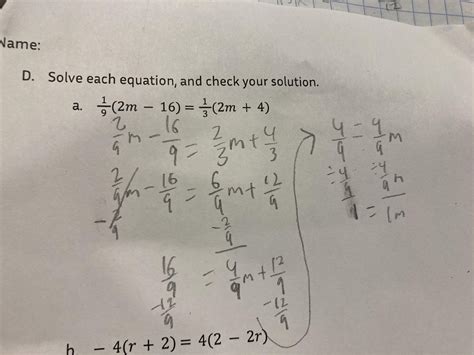 Name:
D. Solve each equation, and check your solution.
a. 1/9(2m − 16) = 1/3(2m + 4)
2/9 m − 16/9 = 2/3 m + 4/3
2/9 m − 16/9 = 6/9 m + 12/9
− 2/9 − 2/9
16/9 = 4/9 m + 12/9
−12/9 −12/9
4/9 = 4/9 m
÷4/9 ÷4/9
= 1m
− 4(r + 2) = 4(2 − 2r)